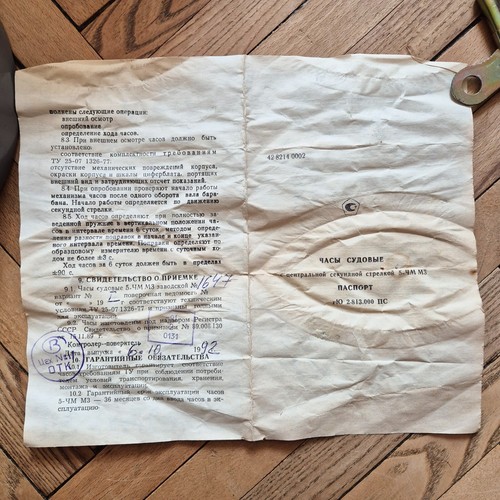 полнены следующие операции:
внешний осмотр
опробование
определение хода часов.
8.3. При внешнем осмотре часов должно быть
установлено:
соответствие комплектности требованиям
ТУ 25-07 1326-77.
отсутствие механических повреждений корпуса,
окраски корпуса и шкалы циферблата, портящих
внешний вид и затрудняющих отсчет показаний.
8.4. При опробовании проверяют начало работы
механизма часов после одного оборота вала ба-
рабана. Начало работы определяется по движению
секундной стрелки.
8.5. Ход часов определяют при полностью за-
веденной пружине в вертикальном положении ча-
сов в интервале времени 6 суток, методом опреде-
ления разности поправок в начале и конце указан-
ного интервала времени. Поправки определяют по
образцовому измерителю времени с суточным хо-
дом не более ±3 с.
Ход часов за 6 суток должен быть в пределах
±90 с.
9. СВИДЕТЕЛЬСТВО О ПРИЕМКЕ
9.1. Часы судовые 5-ЧМ МЗ заводской №
вариант № поверочная ведомость №
от 19 г. соответствуют техническим
условиям ТУ 25-07 1326-77 и признаны годными
для эксплуатации.
9.2. Часы изготовлены под надзором Регистра
СССР. Свидетельство о признании № 89.008.130
11.89 г.
0131
Контролер-поверитель
Дата выпуска «6» 10 1992
В
ЦЕХ №
ОТК
10. ГАРАНТИЙНЫЕ ОБЯЗАТЕЛЬСТВА
10.1. Изготовитель гарантирует соответствие
часов требованиям ТУ при соблюдении потреби-
телем условий транспортирования, хранения,
монтажа и эксплуатации.
10.2. Гарантийный срок эксплуатации часов
5-ЧМ МЗ — 36 месяцев со дня ввода часов в эк-
сплуатацию.
42 8214 0002
ЧАСЫ СУДОВЫЕ
с центральной секундной стрелкой 5-ЧМ МЗ
ПАСПОРТ
2.813.000 ПС